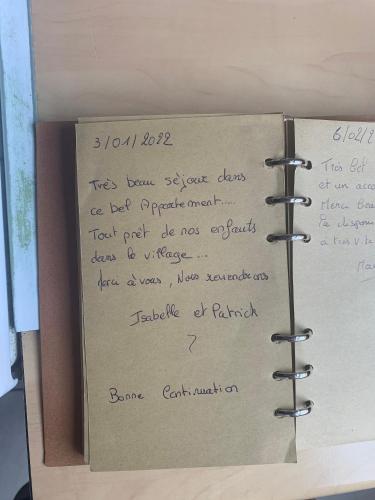 3/01/2022
Très beau séjour dans
ce bel Appartement.....
Tout prêt de nos enfants
dans le village...
Merci à vous, Nous reviendrons
Isabelle et Patrick
Bonne Continuation
6/02/2
Très bel
et un acc
Merci Beau
la dispon
à très vite
Ma